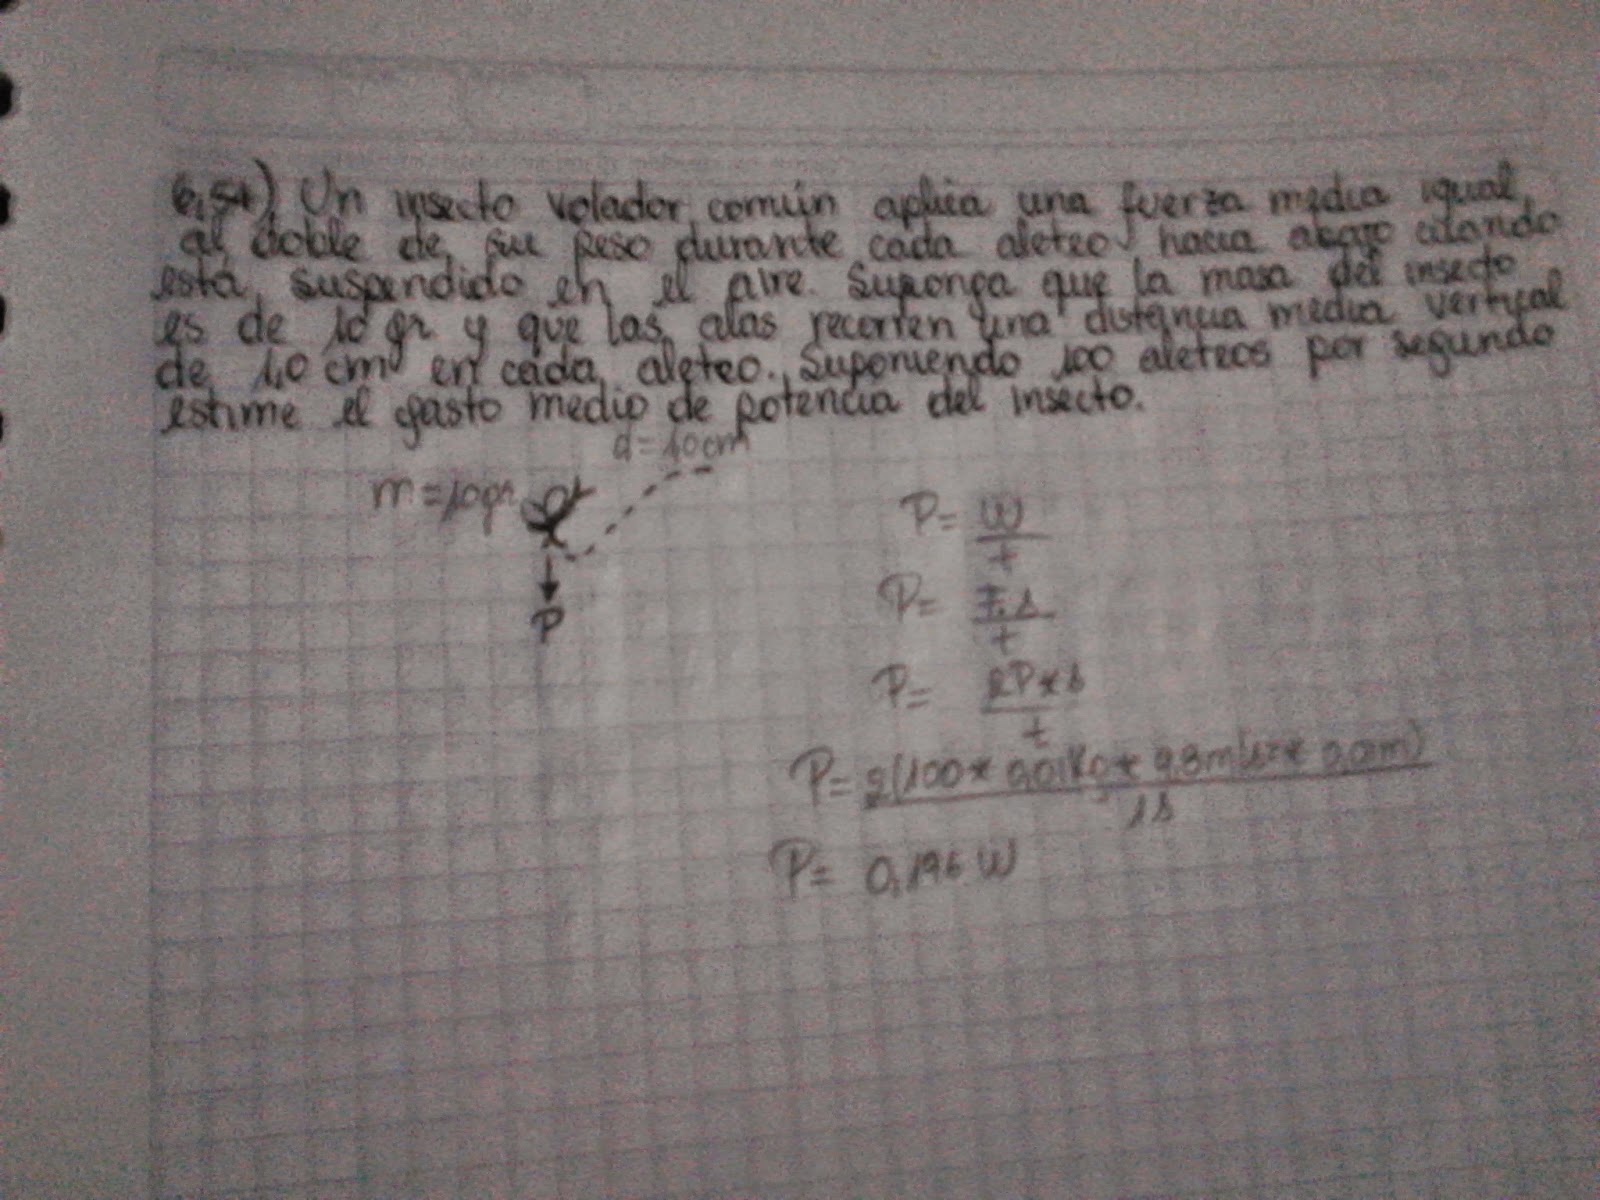 6,54) Un insecto volador común aplica una fuerza media igual
al doble de su peso durante cada aleteo hacia abajo cuando
está suspendido en el aire. Suponga que la masa del insecto
es de 10 gr y que las alas recorren una distancia media vertical
de 1,0 cm en cada aleteo. Suponiendo 100 aleteos por segundo
estime el gasto medio de potencia del insecto.
d=1,0cm
m=10gr
P
P= W/t
P= F.s/t
P= 2P*s/t
P= 2(100* 0,01Kg* 9,8m/s2* 0,01m)/1s
P= 0,196 W